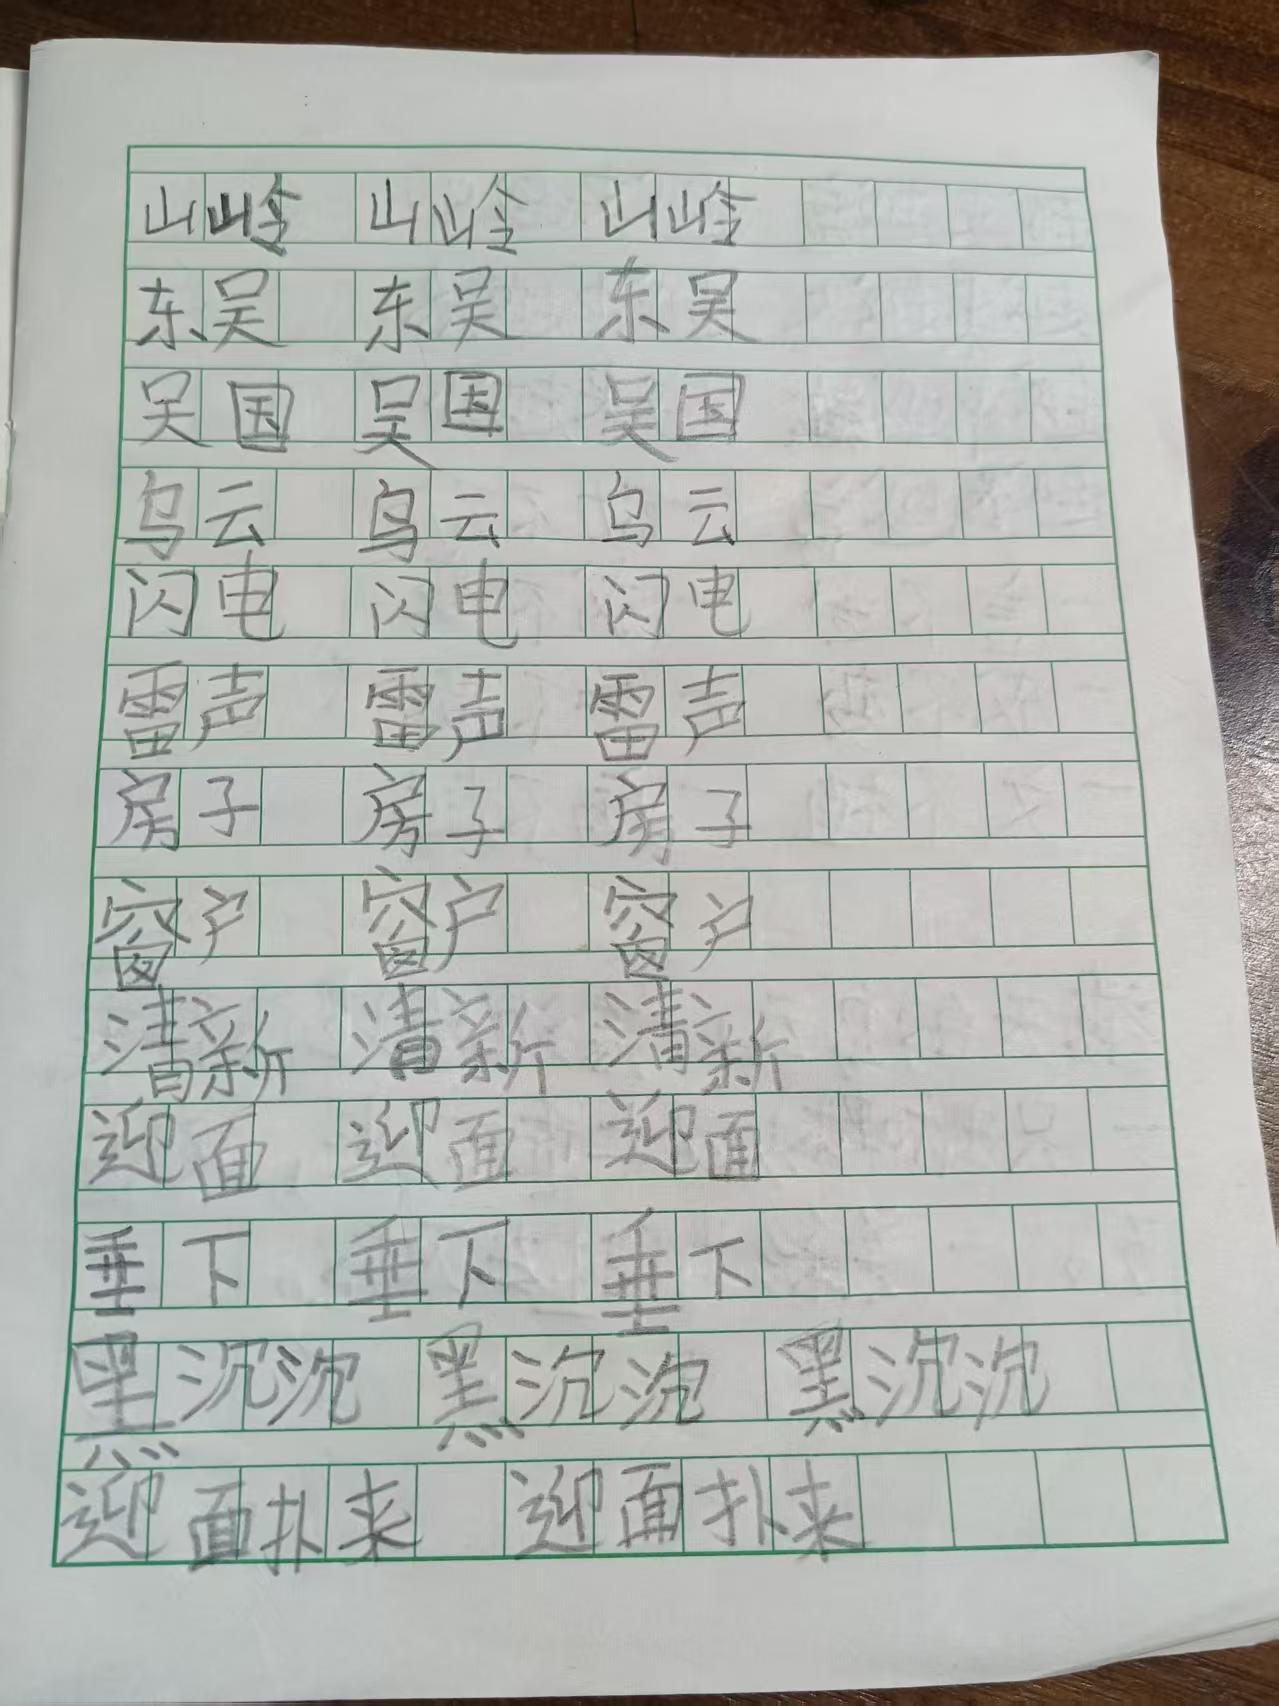 山岭 山岭 山岭
东吴 东吴 东吴
吴国 吴国 吴国
乌云 乌云 乌云
闪电 闪电 闪电
雷声 雷声 雷声
房子 房子 房子
窗户 窗户 窗户
清新 清新 清新
迎面 迎面 迎面
垂下 垂下 垂下
黑沉沉 黑沉沉 黑沉沉
迎面扑来 迎面扑来